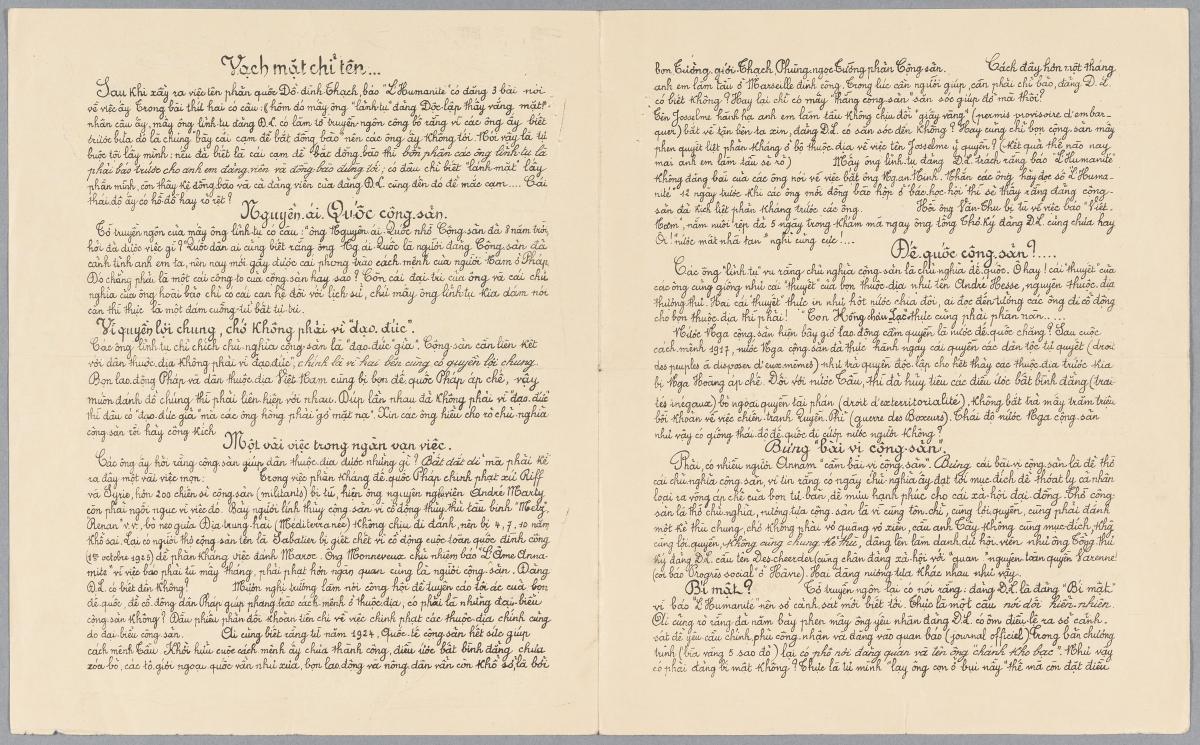 Vạch mặt chỉ tên...
Sau khi xẩy ra việc tên phản quốc Đỗ đình Thạch, báo "L'Humanité" có đăng 3 bài nói
về việc ấy. Trong bài thứ hai có câu: (hôm đó mấy ông "lãnh-tụ" đảng Độc-lập thảy vắng mặt"
nhân câu ấy, mấy ông lĩnh-tụ đảng Đ.L. có làm tờ truyền-ngôn công bố rằng vì các ông ấy biết
trước bữa đó là chúng bầy cái cạm để bắt đồng bào nên các ông ấy không tới. Nói vậy là tự
buộc tội lấy mình; nếu đã biết là cái cạm để bắt đồng.bào thì bổn phận các ông lĩnh-tụ là
phải bảo trước cho anh em đảng.viên và đồng-bào đừng tới; có đâu chỉ biết "lánh-mặt" lấy
phần mình, còn thây kệ đồng.bào và cả đảng viên của đảng Đ.L. cũng đến đó để mắc cạm.... Cái
thái-độ ấy có hồ-đồ hay rõ rệt?
Nguyễn.ái.Quốc cộng.sản.
Tờ truyền-ngôn của mấy ông lĩnh-tụ có câu: "ông Nguyễn-ái-Quốc nhờ Cộng-sản đã 8 năm trời,
hỏi đã được việc gì?" Quốc dân ai cũng biết rằng ông Ng ái Quốc là người đảng Cộng.sản đã
cảnh tỉnh anh em ta, nên nay mới gây được cái phong trào cách.mệnh của người Nam ở Pháp.
Đó chẳng phải là một cái công-to của cộng.sản hay sao? Còn cái đại-trí của ông và cái chủ
nghĩa của ông hoài bão chỉ có cái can hệ đối với lịch-sử, chứ mấy ông lĩnh.tụ kia dám nói
càn thì thực là một đám cuồng-tử bất-tự-tri.
Vì quyền lợi chung, chớ không phải vì "đạo.đức".
Các ông lĩnh-tụ chỉ chích chủ-nghĩa cộng.sản là "đạo-đức giả". Cộng.sản cần liên kết
với dân thuộc.địa không phải vì đạo.đức", chính là vì hai bên cùng có quyền lợi chung.
Bọn lao.động Pháp và dân thuộc.địa Việt Nam cùng bị bọn đế quốc Pháp áp chế, vậy
muốn đánh đổ chúng thì phải liên-hiệp với nhau. Giúp lẫn nhau đã không phải vì đạo.đức
thì đâu có "đạo-đức giả" mà các ông hòng phải "gỡ mặt nạ". Xin các ông hiểu cho rõ chủ-nghĩa
cộng.sản rồi hãy công kích
Một vài việc trong ngàn vạn việc.
Các ông ấy hỏi rằng cộng.sản giúp dân thuộc-địa được những gì? Bất đắt dĩ mà phải kể
ra đây một vài việc mọn: Trong việc phản kháng đế.quốc Pháp chinh phạt xứ Riff
và Syrie, hơn 200 chiến-sĩ cộng.sản (militants) bị tù, hiện ông nguyên nghị-viên André Marty
còn phải ngồi ngục vì việc đó. Bảy người lính thủy cộng.sản vì cổ động thủy thủ tầu binh "Metz",
Renan" v.v., bỏ neo giữa Địa-trung.hải (Méditerranée) không chịu đi đánh, nên bị 4, 7, 10 năm
khổ sai. Lại có người thợ cộng.sản tên là Sabatier bị giết chết vì cổ động cuộc toàn quốc đình công
(1er octobre 1925) để phản kháng việc đánh Maroc. Ông Monneveux chủ nhiệm báo "L'Âme Anna-
mite" vì việc báo phải tù mấy tháng, phải phạt hơn ngàn quan cũng là người cộng.sản. Đảng
Đ.L. có biết đến không? Muôn nghị trường làm nơi công hội để tuyên cáo tội ác của bọn
đế.quốc, để cổ.động dân Pháp giúp phong.trào cách.mệnh ở thuộc.địa, có phải là những đại-biểu
cộng.sản không? Đầu phiếu phản đối khoản tiền chi về việc chinh phạt các thuộc.địa chính cũng
do đại-biểu cộng.sản. Ai cũng biết rằng từ năm 1924, Quốc-tế cộng.sản hết sức giúp
cách mệnh Tầu. Khởi hữu cuộc cách mệnh ấy chưa thành công, điều ước bất bình đẳng chưa
xóa-bỏ, các tô.giới ngoại quốc vẫn như xưa, bọn lao.động và nông.dân vẫn còn khổ sở, là bởi
bọn Tưởng.giới.Thạch Phùng.ngọc.Tường phản Cộng.sản. Cách đây hơn một tháng
anh em làm tầu ở Marseille đình công. Trong lúc cần người giúp, cần phải chỉ bảo, đảng Đ.L.
có biết không? Hay lại chỉ có mấy "thằng cộng.sản" săn sóc giúp đỡ mà thôi?
Tên Josselme hành hạ anh em làm tầu không chịu đổi "giấy vàng" (permis provisoire d'embar-
quer) bắt về tận bên ta xin, đảng Đ.L. có săn sóc đến không? Hay cũng chỉ bọn cộng.sản mấy
phen quyết liệt phản kháng ở bộ thuộc.địa về việc tên Josselme ỷ quyền? (Kết quả thế nào nay
mai anh em làm tầu sẽ rõ) Mấy ông lĩnh.tụ đảng Đ.L. trách rằng báo L'Humanité
không đăng bài của các ông nói về việc bắt ông Ng.an.Ninh. Thần các ông hãy đọc số L'Huma-
nité 12 ngày trước khi các ông mời đồng bào họp ở bác-học-hội thì sẽ thấy rằng đảng cộng-
sản đã kịch liệt phản kháng trước các ông. Hồi ông Văn-Thu bị tù về việc báo "Việt-
Nam", nằm nuôi rệp đã 5 ngày trong khám mà ngay ông tổng Thơ.ký đảng Đ.L. cũng chưa hay
Ôi! "nước mất nhà tan" nghĩ cũng cực....
Đế.quốc cộng.sản?....
Các ông "lĩnh.tụ" vu rằng chủ nghĩa cộng.sản là chủ nghĩa đế.quốc. Ồ hay! cái "thuyết" của
các ông cũng giống như cái "thuyết" của bọn thuộc.địa như tên André Hesse, nguyên thuộc.địa
thượng thư. Hai cái "thuyết" thực in như hột nước chia đôi, ai đọc đến tưởng các ông đi cổ động
cho bọn thuộc.địa thì phải! Con Hồng cháu Lạc thức cũng phải phàn nàn.....
Nước Nga cộng.sản hiện bây giờ lao.động cầm quyền là nước đế.quốc chăng? Sau cuộc
cách.mệnh 1917, nước Nga cộng.sản đã thực hành ngay cái quyền các dân tộc tự quyết (droit
des peuples à disposer d'eux mêmes) như trả quyền độc.lập cho hết thảy các thuộc.địa trước kia
bị Nga Hoàng áp chế. Đối với nước Tầu, thì đã hủy tiêu các điều ước bất bình đẳng (trai-
tés inégaux) bỏ ngoại quyền tài phán (droit d'exterritorialité), không bắt trả mấy trăm triệu
bồi khoản về việc chiến-tranh Quyền Phỉ (guerre des Boxeurs). Thái độ nước Nga cộng.sản
như vậy có giống thái.độ đế.quốc đi cướp nước người không?
Bưng "bài vị cộng.sản".
Phải, có nhiều người Annam "cầm bài vị cộng.sản". Bưng cái bài vị cộng.sản là để thờ
cái chủ.nghĩa cộng.sản, vì tin rằng có ngày chủ-nghĩa ấy đạt tới mục đích để thoát ly cả nhân
loại ra vòng áp chế của bọn tư bản, để mưu hạnh phúc cho cái xã.hội đại đồng. Thờ cộng-
sản là thờ chủ-nghĩa, nương.tựa cộng.sản là vì cùng tôn-chỉ, cùng lợi.quyền, cùng phải đánh
một kẻ thù chung, chớ không phải vơ quàng vơ xiên, cầu anh Tây không cùng mục-đích, không
cùng lợi quyền, không cùng chung kẻ thù, dâng lên làm danh.dự hội.viên như ông Tổng thư
ký đảng Đ.L. cầu tên Descheerder (cũng chân đảng xã.hội với "quan" nguyên toàn quyền Varenne
(coi báo Progrès social" ở Havre). Hai đằng nương-tựa khác nhau như vậy.
Bí mật? Tờ truyền ngôn lại có nói rằng: đảng Đ.L. là đảng "Bí mật"
vì báo "L'Humanité" nên sở cảnh.sát mới biết tới. Thực là một câu nói dối hiển-nhiên.
Ai cũng rõ rằng đã năm bảy phen mấy ông yêu nhân đảng Đ.L. có ôm điều-lệ ra sở cảnh.
sát để yêu.cầu chính.phủ công.nhận và đăng vào quan báo (journal officiel) Trong bản chương
trình (bìa vàng 5 sao đỏ) lại có phô nơi đảng quán và tên ông "chánh kho bạc". Như vậy
có phải đảng bí mật không? Thực là tự mình "lạy ông con ở bụi này" thế mà còn đặt điều